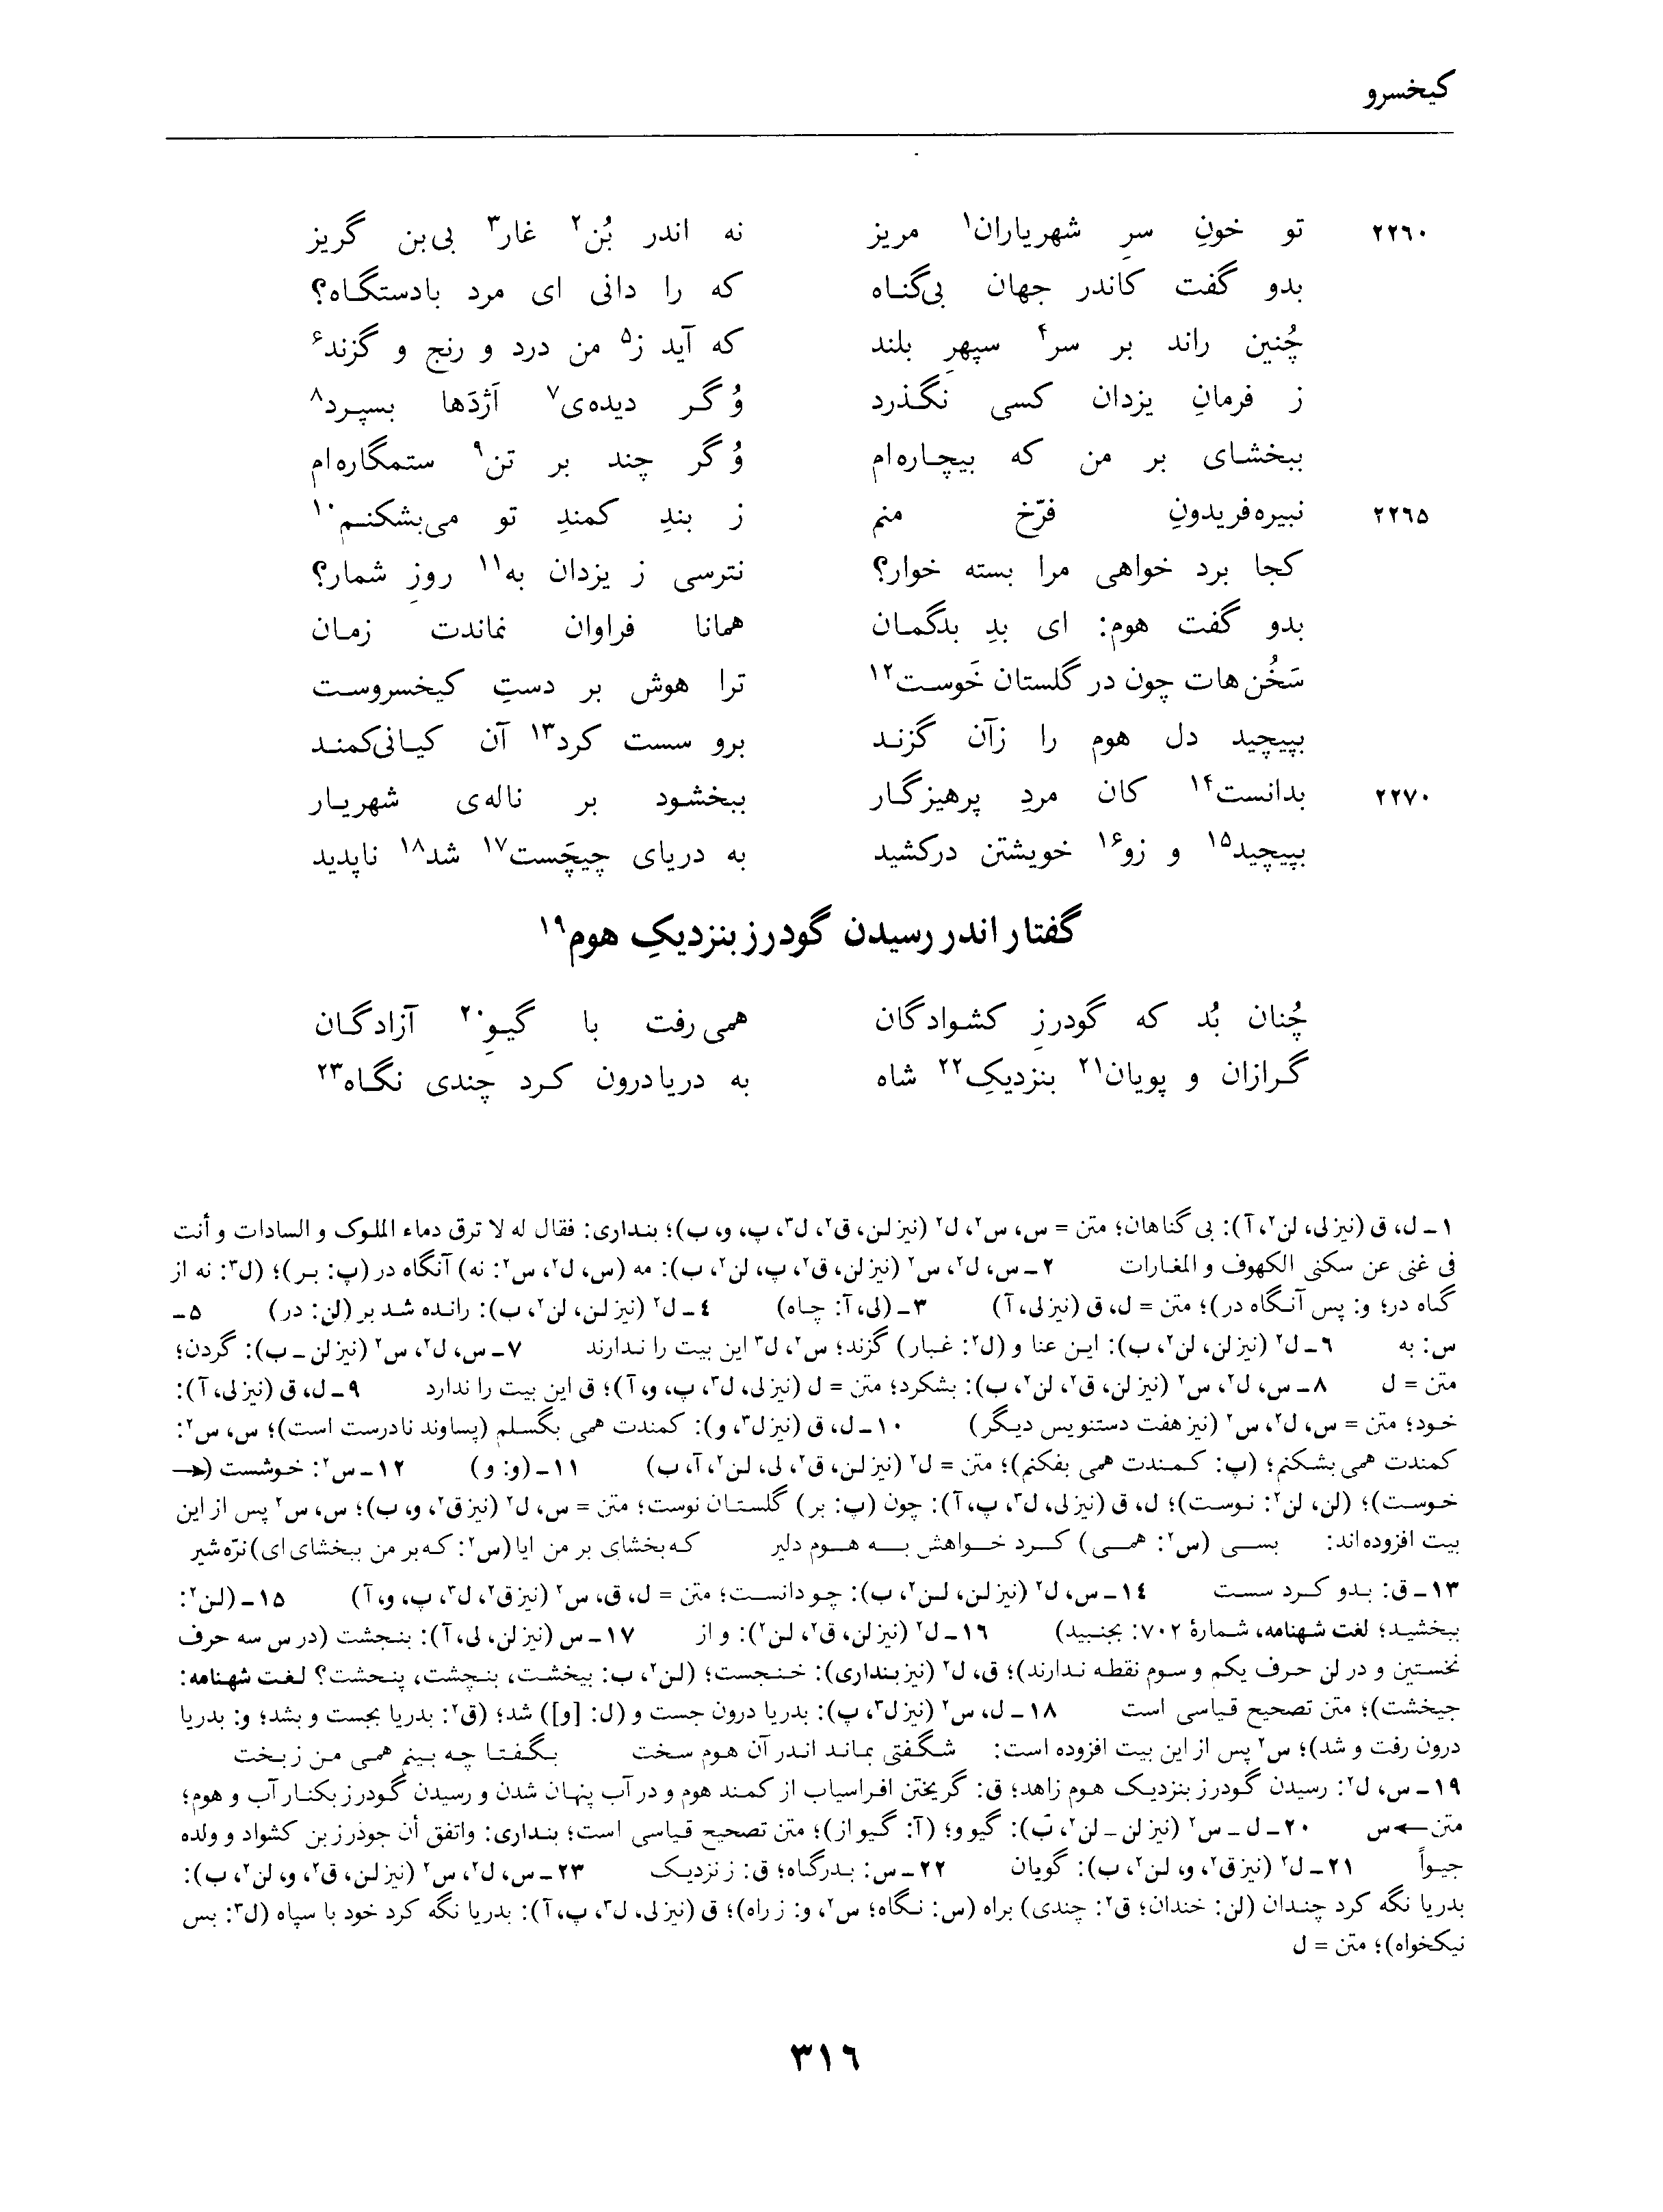 کیخسرو
۲۲۶۰ تو خونِ سرِ شهریاران۱ مریز نه اندر بُن۲ غار۳ بی‌بن گریز
بدو گفت کاندر جهان بی‌گناه که را دانی ای مرد بادستگاه؟
چُنین راند بر سر۴ سپهرِ بلند که آید ز۵ من درد و رنج و گزند۶
ز فرمانِ یزدان کسی نگذرد وُ گر دیده‌ی۷ اَژدَها بسپرد۸
ببخشای بر من که بیچاره‌ام وُ گر چند بر تن۹ ستمگاره‌ام
۲۲۶۵ نبیره‌فریدونِ فرّخ منم ز بندِ کمندِ تو می‌بشکنم۱۰
کجا برد خواهی مرا بسته خوار؟ نترسی ز یزدان به۱۱ روزِ شمار؟
بدو گفت هوم: ای بدِ بدگمان همانا فراوان نماندت زمان
سَخُن‌هات چون در گلستان خَوست۱۲ ترا هوش بر دستِ کیخسروست
بپیچید دل هوم را زآن گزند برو سست کرد۱۳ آن کیانی‌کمند
۲۲۷۰ بدانست۱۴ کان مردِ پرهیزگار ببخشود بر ناله‌ی شهریار
بپیچید۱۵ و زو۱۶ خویشتن درکشید به دریای چیچَست۱۷ شد۱۸ ناپدید
گفتار اندر رسیدن گودرز بنزدیکِ هوم۱۹
چُنان بُد که گودرزِ کشوادگان همی‌رفت با گیوِ۲۰ آزادگان
گرازان و پویان۲۱ بنزدیکِ۲۲ شاه به دریا درون کرد چندی نگاه۲۳
۱ـ ل، ق (نیز لی، لن۲، آ): بی گناهان؛ متن = س، س۲، ل۲ (نیز لن، ق۲، ل۳، پ، و، ب)؛ بنداری: فقال له لا ترق دماء الملوک و السادات و أنت
فی غنی عن سکنی الکهوف و المغارات ۲ـ س، ل۲، س۲ (نیز لن، ق۲، پ، لن۲، ب): مه (س، ل۲، س۲: نه) آنگاه در (پ: بر)؛ (ل۳: نه از
گاه در؛ و: پس آنگاه در)؛ متن = ل، ق (نیز لی، آ) ۳ـ (لی، آ: چاه) ۴ـ ل۲ (نیز لن، لن۲، ب): رانده شد بر (لن: در) ۵ـ
س: به ۶ـ ل۲ (نیز لن، لن۲، ب): این عنا و (ل۲: غبار) گزند؛ س۲، ل۳ این بیت را ندارند ۷ـ س، ل۲، س۲ (نیز لن ـ ب): گردن؛
متن = ل ۸ـ س، ل۲، س۲ (نیز لن، ق۲، لن۲، ب): بشکرد؛ متن = ل (نیز لی، ل۳، پ، و، آ)؛ ق این بیت را ندارد ۹ـ ل، ق (نیز لی، آ):
خود؛ متن = س، ل۲، س۲ (نیز هفت دستنویس دیگر) ۱۰ـ ل، ق (نیز ل۳، و): کمندت همی بگسلم (پساوند نادرست است)؛ س، س۲:
کمندت همی بشکنم؛ (پ: کمندت همی بفکنم)؛ متن = ل۲ (نیز لن، ق۲، لی، لن۲، آ، ب) ۱۱ـ (و: و) ۱۲ـ س۲: خوشست (←
خوست)؛ (لن، لن۲: نوست)؛ ل، ق (نیز لی، ل۳، پ، آ): چون (پ: بر) گلستان نوست؛ متن = س، ل۲ (نیز ق۲، و، ب)؛ س، س۲ پس از این
بیت افزوده‌اند: بسی (س۲: همی) کرد خواهش به هوم دلیر که بخشای بر من ایا (س۲: که بر من ببخشای ای) نرّه شیر
۱۳ـ ق: بدو کرد سست ۱۴ـ س، ل۲ (نیز لن، لن۲، ب): چو دانست؛ متن = ل، ق، س۲ (نیز ق۲، ل۳، پ، و، آ) ۱۵ـ (لن۲:
ببخشید؛ لغت شهنامه، شمارهٔ ۷۰۲: بجنبید) ۱۶ـ ل۲ (نیز لن، ق۲، لن۲): و از ۱۷ـ س (نیز لن، لی، آ): بنجشت (در س سه حرف
نخستین و در لن حرف یکم و سوم نقطه ندارند)؛ ق، ل۲ (نیز بنداری): خنجست؛ (لن۲، ب: بیخشت، بنچشت، پنحشت؟ لغت شهنامه:
جیخشت)؛ متن تصحیح قیاسی است ۱۸ـ ل، س۲ (نیز ل۳، پ): بدریا درون جست و (ل: [و]) شد؛ (ق۲: بدریا بجست و بشد؛ و: بدریا
درون رفت و شد)؛ س۲ پس از این بیت افزوده است: شگفتی بماند اندر آن هوم سخت بگفتا چه بینم همی من ز بخت
۱۹ـ س، ل۲: رسیدن گودرز بنزدیک هوم زاهد؛ ق: گریختن افراسیاب از کمند هوم و در آب پنهان شدن و رسیدن گودرز بکنار آب و هوم؛
متن ← س ۲۰ـ ل ـ س۲ (نیز لن ـ لن۲، ب): گیو و؛ (آ: گیو از)؛ متن تصحیح قیاسی است؛ بنداری: واتفق أن جوذرز بن کشواد و ولده
جیواً ۲۱ـ ل۲ (نیز ق۲، و، لن۲، ب): گویان ۲۲ـ س: بدرگاه؛ ق: ز نزدیک ۲۳ـ س، ل۲، س۲ (نیز لن، ق۲، و، لن۲، ب):
بدریا نگه کرد چندان (لن: خندان؛ ق۲: چندی) براه (س: نگاه؛ س۲، و: ز راه)؛ ق (نیز لی، ل۳، پ، آ): بدریا نگه کرد خود با سپاه (ل۳: بس
نیکخواه)؛ متن = ل
۳۱۶